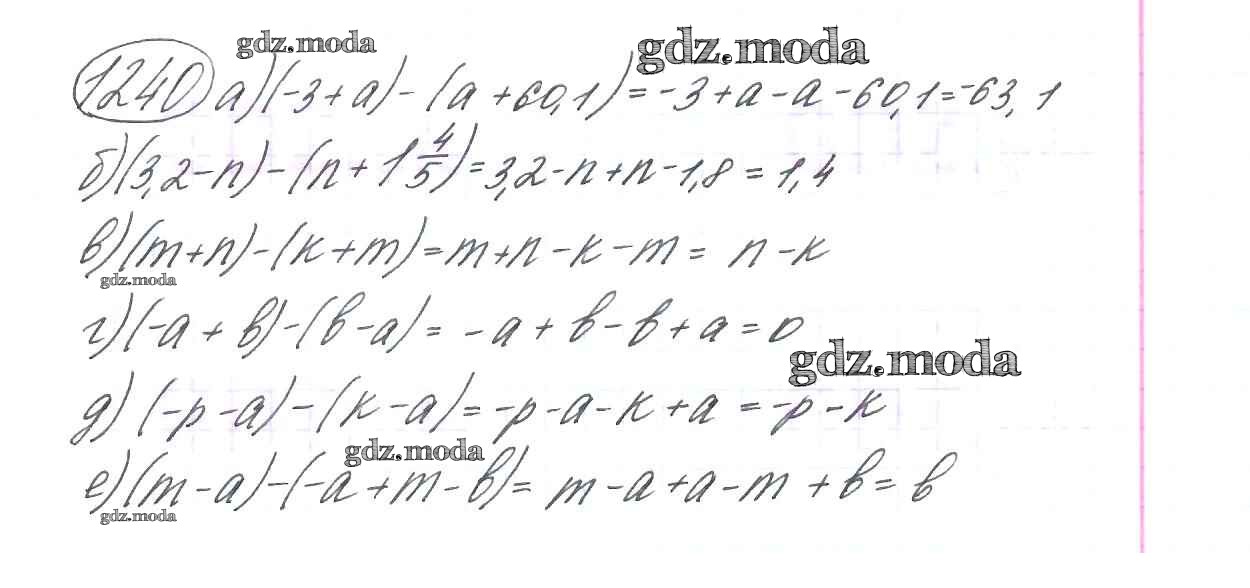 gdz.moda gdz.moda
1240 а) (-3+a) - (a+60,1) = -3+a-a-60,1 = -63,1
б) (3,2-n) - (n+1 4/5) = 3,2-n+n-1,8 = 1,4
в) (m+n) - (k+m) = m+n-k-m = n-k
gdz.moda
г) (-a+в) - (в-a) = -a+в-в+a = 0
gdz.moda
д) (-p-a) - (k-a) = -p-a-k+a = -p-k
gdz.moda
е) (m-a) - (-a+m-в) = m-a+a-m+в = в
gdz.moda